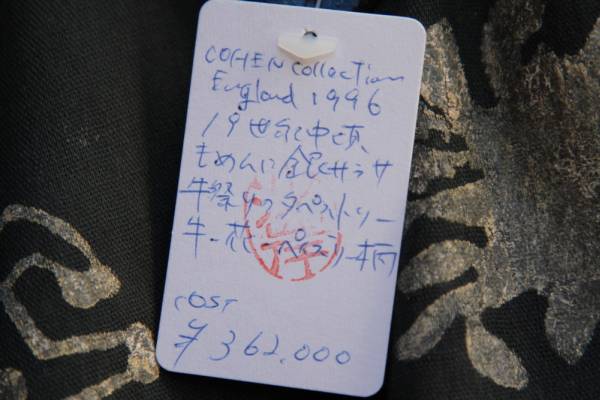 COHEN collection
England 1996
19世紀中頃
もめんに銀サラサ
牛祭りのタペストリー
牛・花・ペイズリー柄
COST
¥362.000